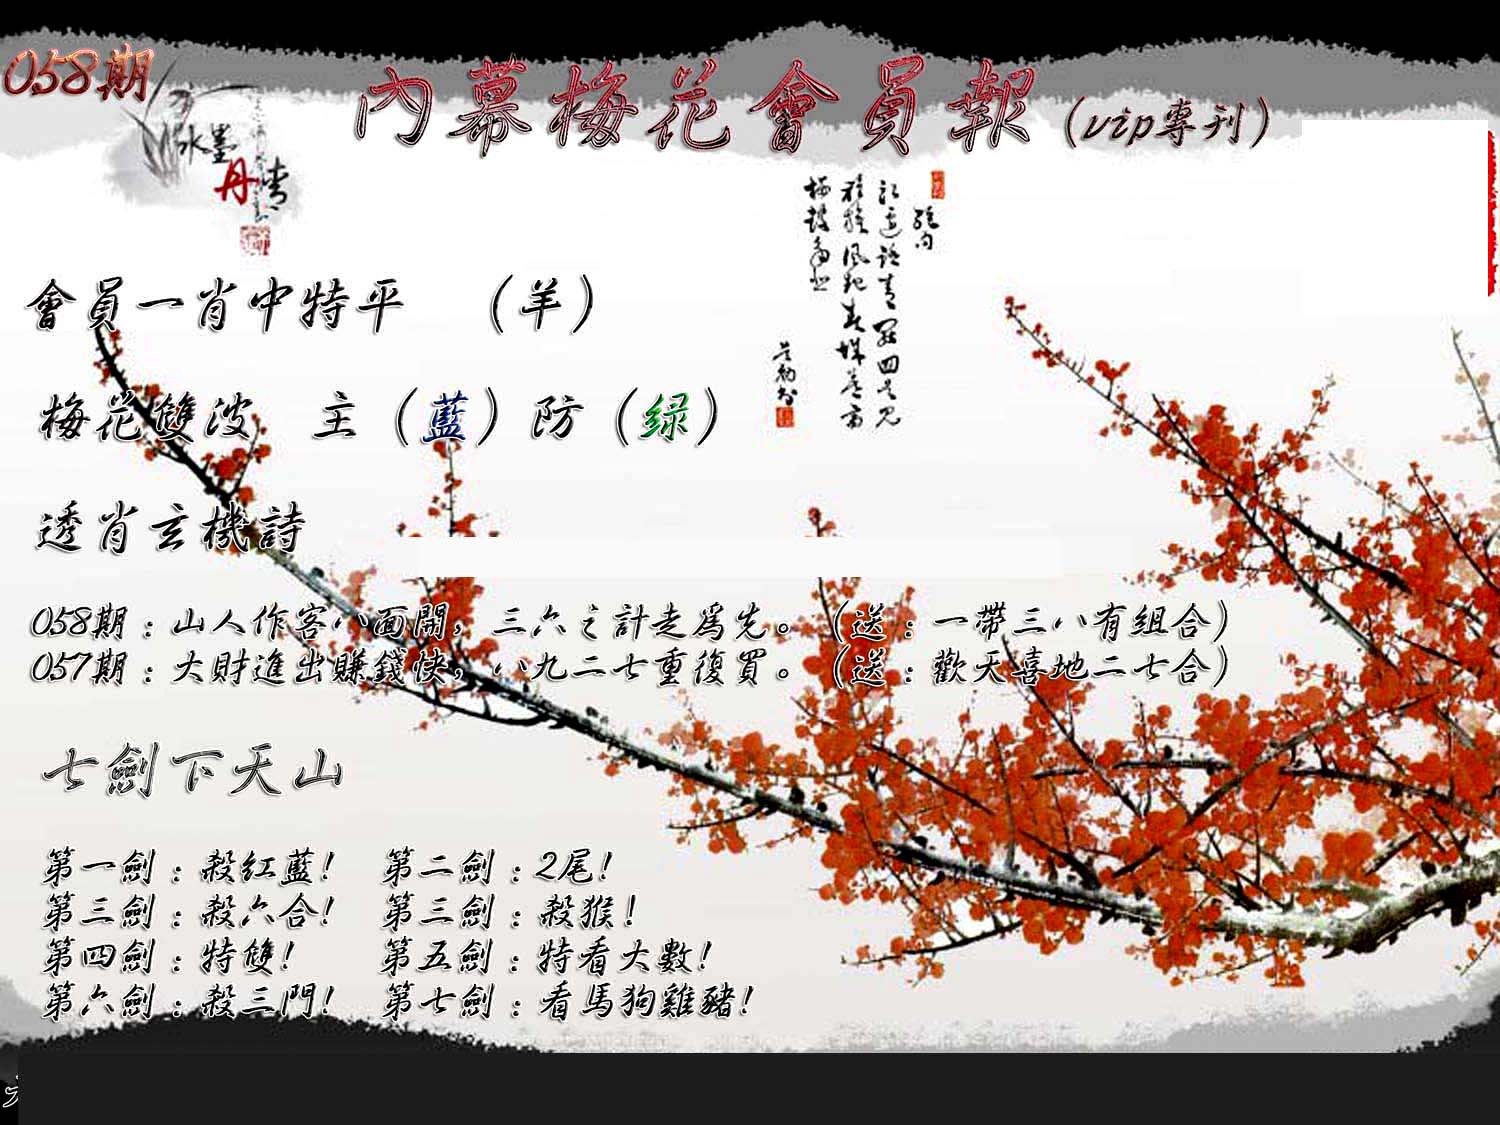 058期
內幕梅花會員報（vip專刊）
水墨
丹青
會員一肖中特平　（羊）
梅花雙波　主（藍）防（绿）
透肖玄機詩
058期：山人作客八面開，三六之計走爲先。（送：一帶三八有組合）
057期：大財進出賺錢快，八九二七重復買。（送：歡天喜地二七合）
七劍下天山
第一劍：殺红藍！　第二劍：2尾！
第三劍：殺六合！　第三劍：殺猴！
第四劍：特雙！　第五劍：特看大數！
第六劍：殺三門！　第七劍：看馬狗雞豬！